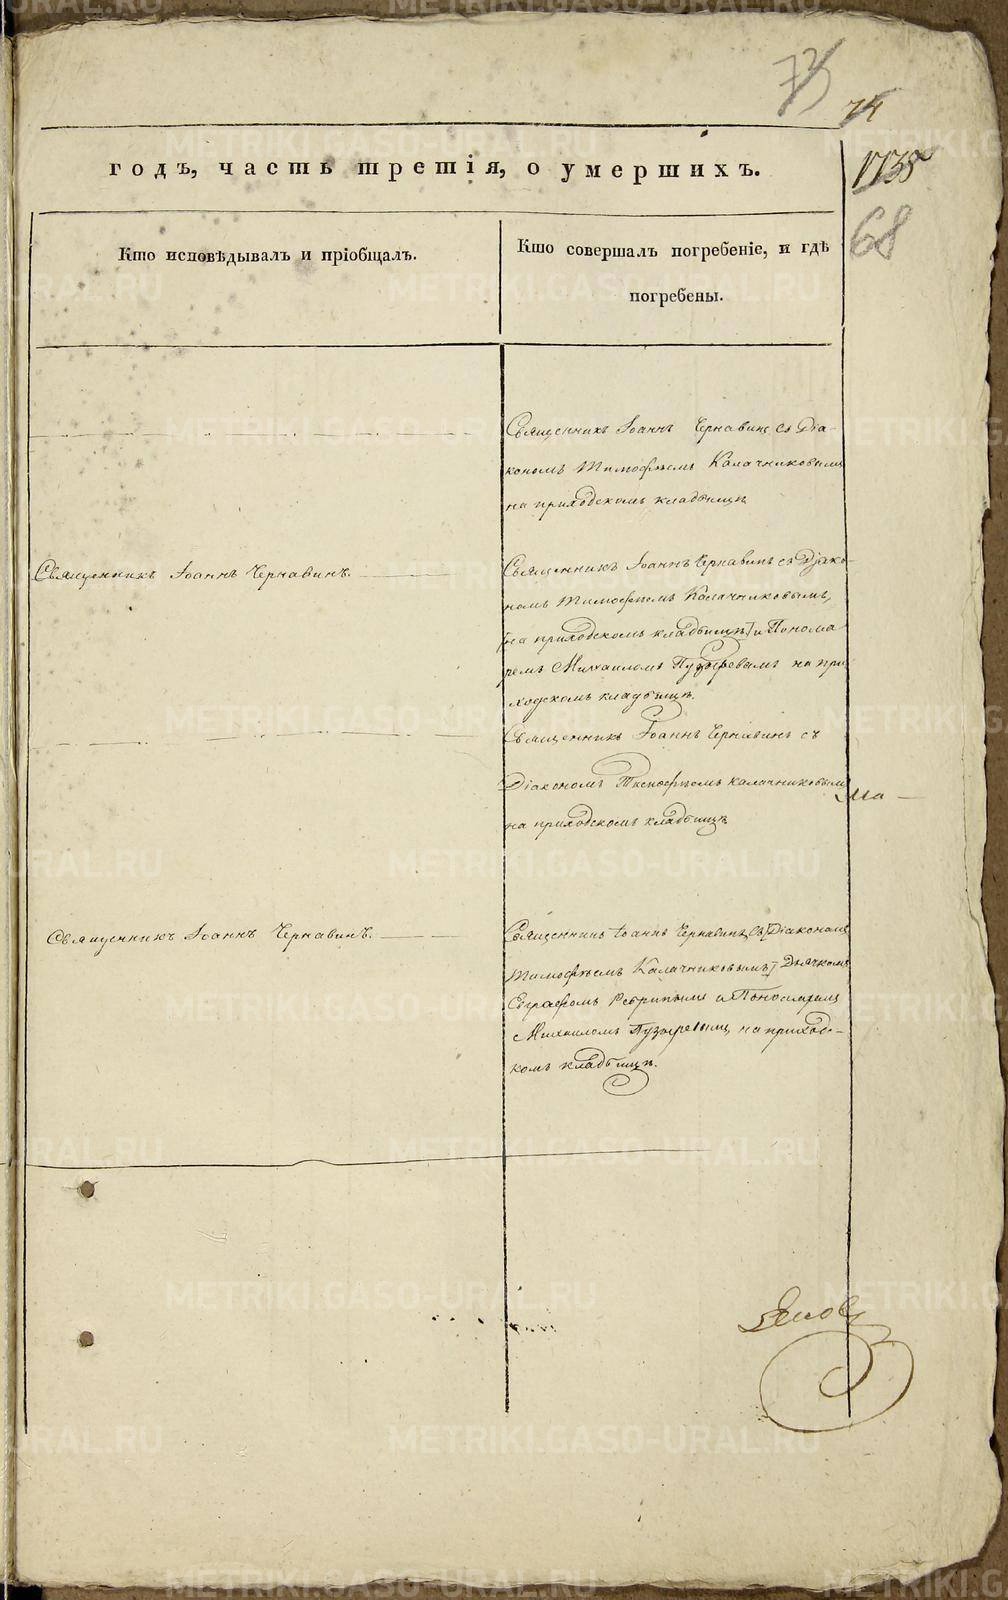 73
74
годъ, часть третія, о умершихъ.
1138
68
Кто исповѣдывалъ и пріобщалъ.
Кто совершалъ погребеніе, и гдѣ
погребены.
Священникъ Іоаннъ Чернавинъ съ Діа-
кономъ Тимофѣемъ Калачниковымъ
на приходскомъ кладбищѣ
Священникъ Іоаннъ Чернавинъ.
Священникъ Іоаннъ Чернавинъ съ Діако-
номъ Тимофѣемъ Калачниковымъ,
[на приходскомъ кладбищѣ] и Понома
ремъ Михаиломъ Пузыревымъ на при
ходскомъ кладбищѣ.
Священникъ Іоаннъ Чернавинъ съ
Діакономъ Тимофѣемъ Калачниковымъ
на приходскомъ кладбищѣ
Священникъ Іоаннъ Чернавинъ.
Священникъ Іоаннъ Чернавинъ, съ [Діакономъ
Тимофѣемъ Калачниковымъ] Дьячкомъ
Евграфомъ и Пономаремъ
Михаиломъ Пузыревымъ на приход-
комъ кладбищѣ.
METRIKI.GASO-URAL.RU